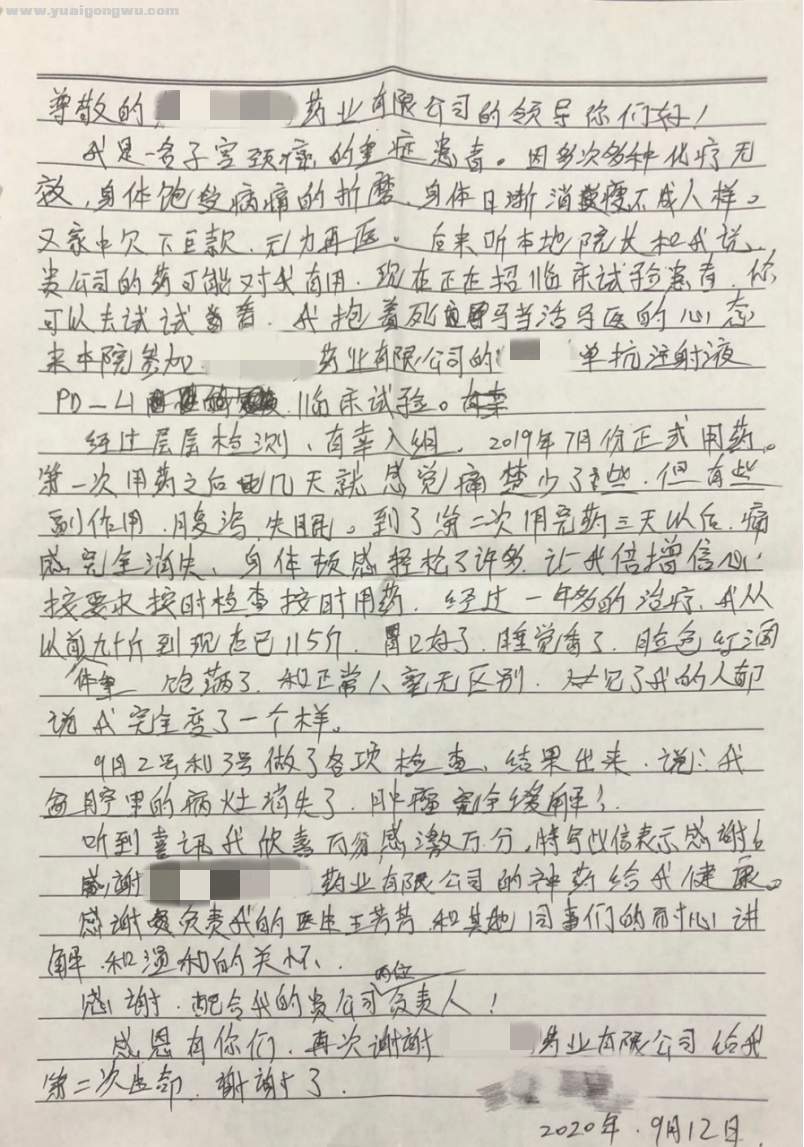 www.yuaigongwu.com
尊敬的 药业有限公司的领导你们好！
我是一名子宫颈癌的重症患者。因多次多种化疗无
效，身体饱受病痛的折磨，身体日渐消瘦不成人样。
又家中欠下巨款，无力再医。后来听本地院长和我说、
贵公司的药可能对我有用，现在正在招临床试验患者，你
可以去试试看。我抱着死马当活马医的心态
来本院参加 药业有限公司的 单抗注射液
PD-L1 临床试验。
经过层层检测、有幸入组，2019年7月份正式用药。
第一次用药之后几天就感觉痛楚少了些，但有些
副作用，腹泻，失眠。到了第二次用完药三天以后，痛
感完全消失、身体顿感轻松了许多，让我倍增信心，
按要求按时检查按时用药，经过一年多的治疗，我从
以前九十斤到现在已115斤，胃口好了，睡觉香了，脸色红润
饱满了，和正常人毫无区别，见了我的人都
说我完全变了一个样。
9月2号和3号做了各项检查、结果出来，说：我
腔里的病灶消失了，肿瘤完全缓解！
听到喜讯我欣喜万分，感激万分，特写此信表示感谢！
感谢 药业有限公司的神药给我健康。
感谢负责我的医生王芳芳，和其他同事们的耐心讲
解，和温和的关怀，
感谢，配合我的贵公司两位负责人！
感恩有你们，再次谢谢 药业有限公司给我
第二次生命，谢谢了。
2020年，9月12日